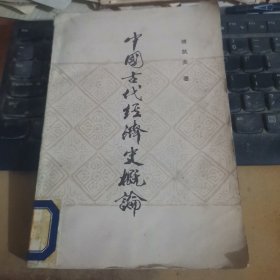 中國古代經濟史概論
著